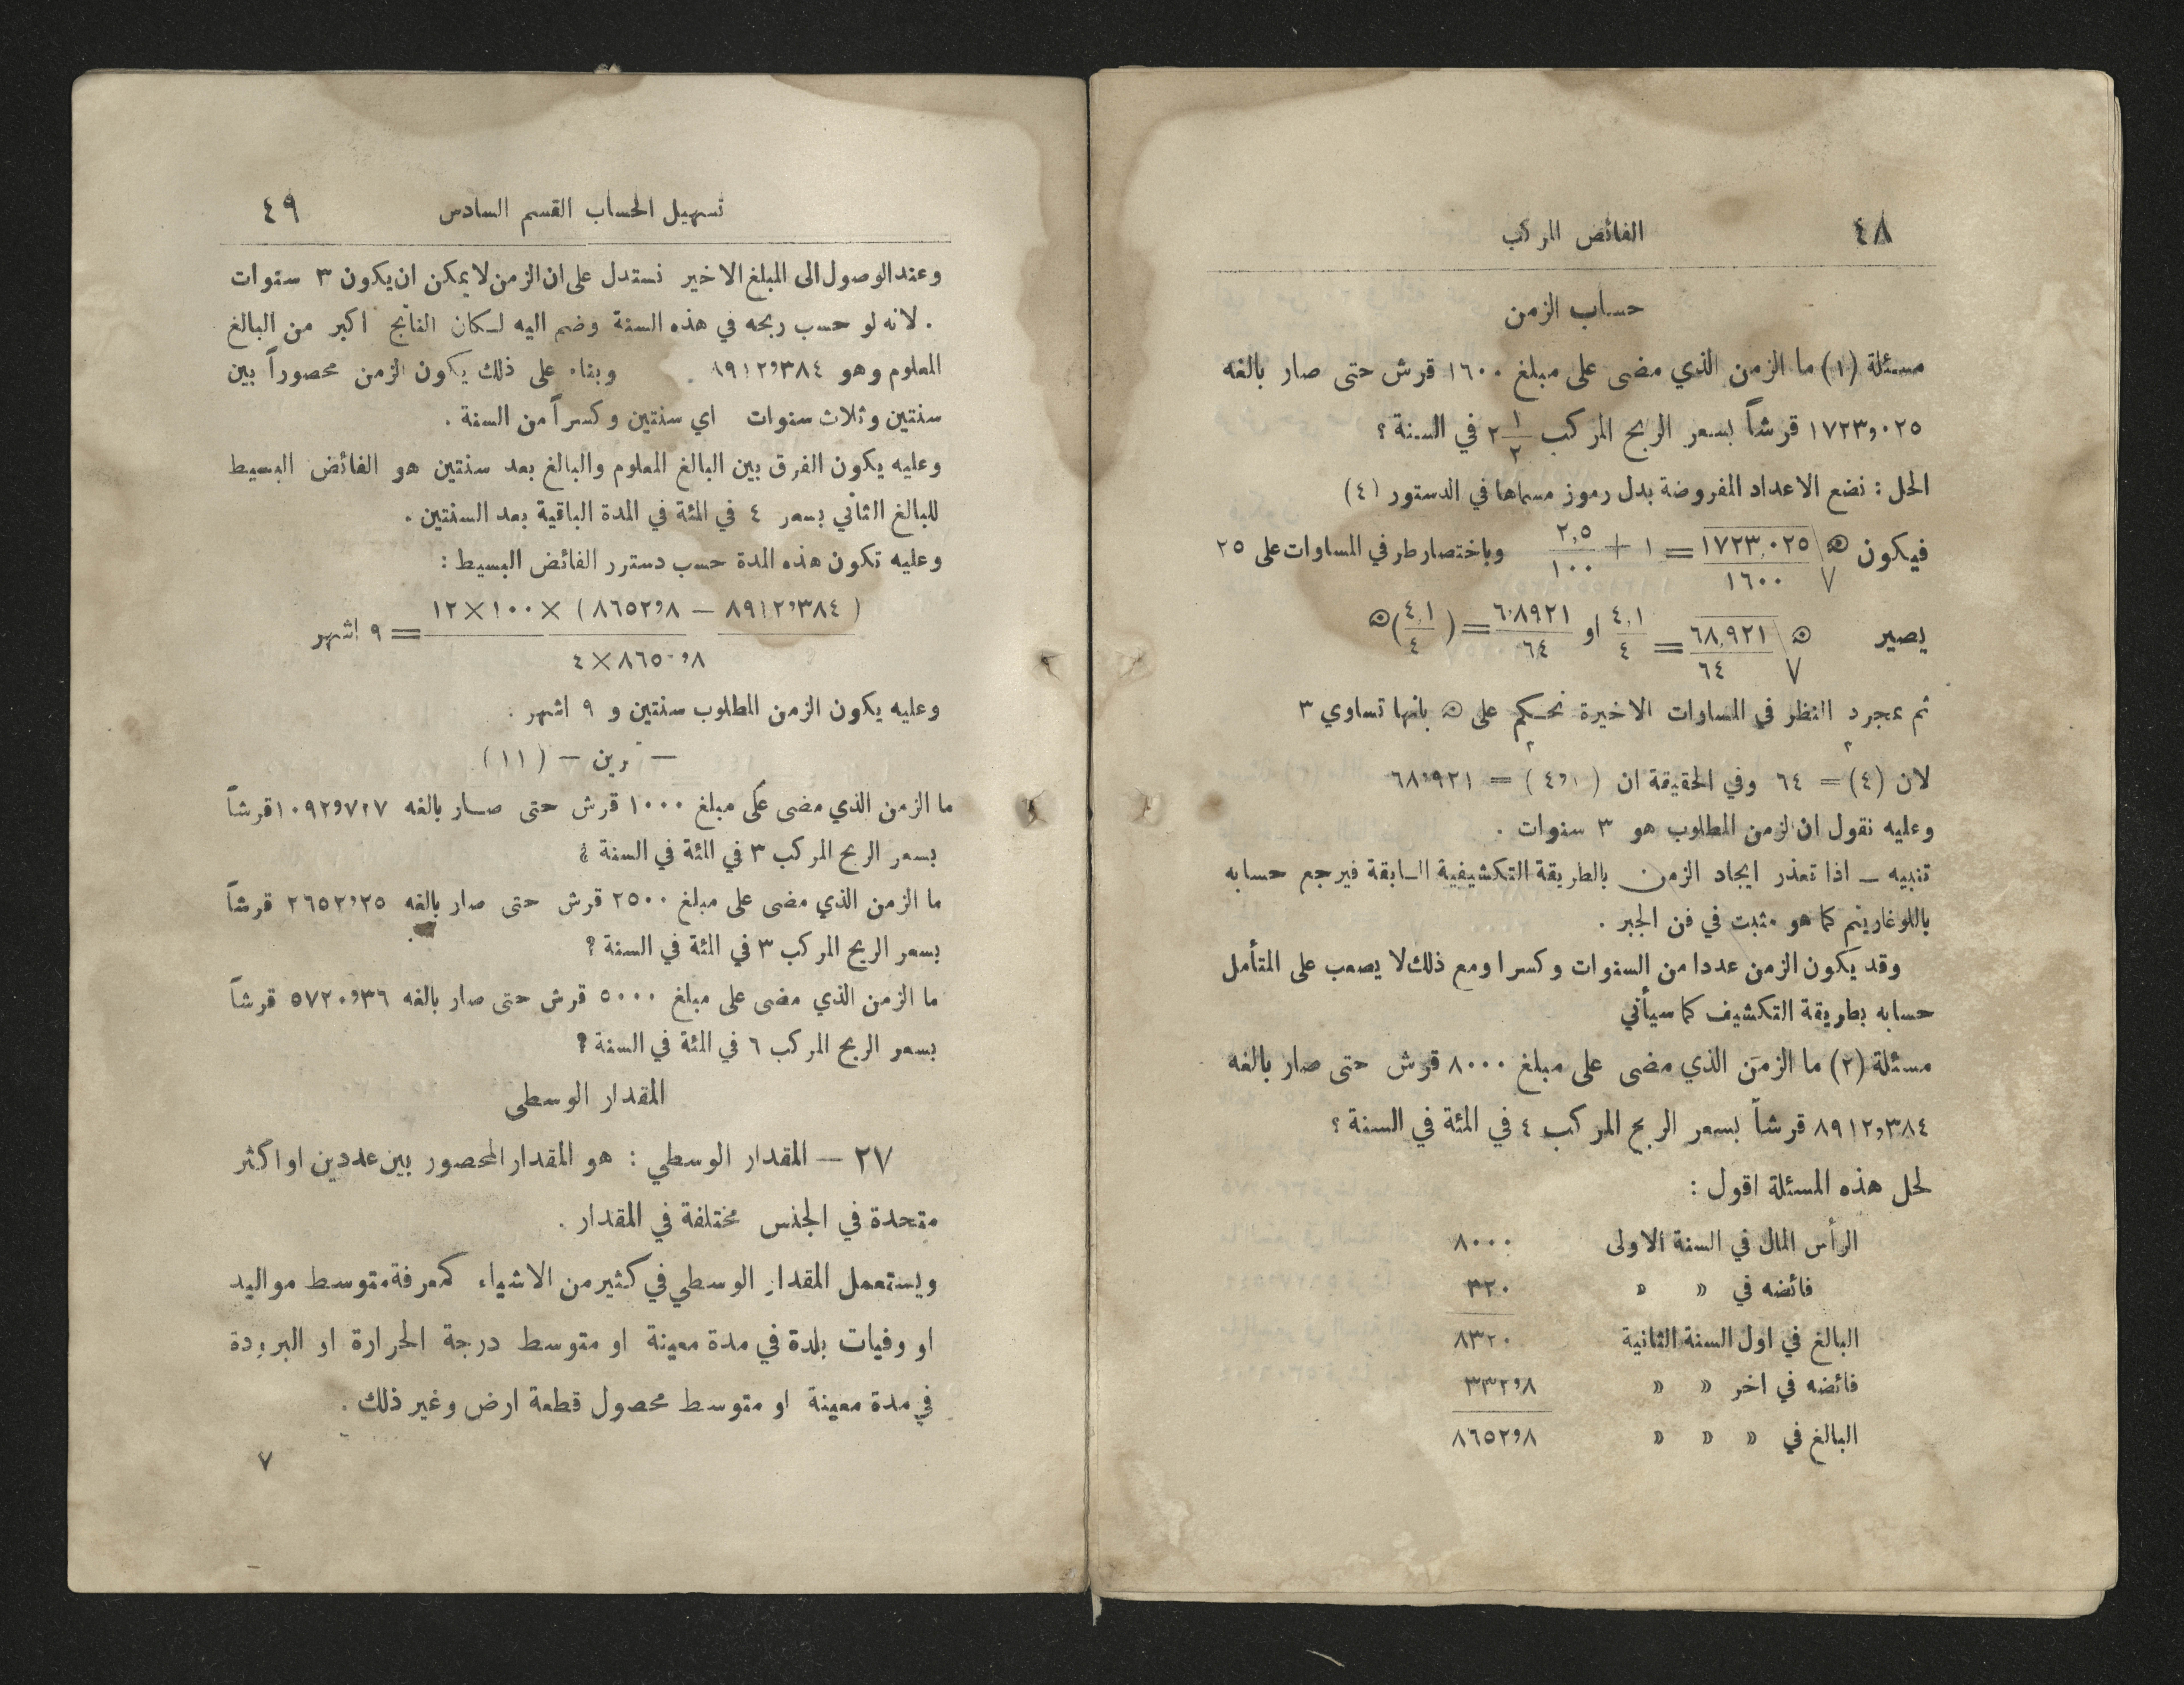 ٤٨
الفائض المركب
حساب الزمن
مسئلة (١) ما الزمن الذي مضى على مبلغ ١٦٠٠ قرش حتى صار بالغه
١٧٢٣٫٠٢٥ قرشاً بسعر الربح المركب ٢ ١/٢ في السنة ؟
الحل : نضع الاعداد المفروضة بدل رموز مسماها في الدستور (٤)
فيكون ه√ ١٧٢٣٫٠٢٥ / ١٦٠٠ = ١ + ٢,٥ / ١٠٠ وباختصار طرفي المساوات على ٢٥
يصير ه√ ٦٨,٩٢١ / ٦٤ = ٤,١ / ٤ او ٦٠٨٩٢١ / ٦٤ = (٤,١ / ٤)ه
ثم بمجرد النظر في المساوات الاخيرة نحكم على ه بانها تساوي ٣
لان (٤)٣ = ٦٤ وفي الحقيقة ان (٤٫١)٣ = ٦٨٫٩٢١
وعليه نقول ان الزمن المطلوب هو ٣ سنوات .
تنبيه – اذا تعذر ايجاد الزمن بالطريقة التكشيفية السابقة فيرجع حسابه
باللوغاريتم كما هو مثبت في فن الجبر .
وقد يكون الزمن عددا من السنوات وكسرا ومع ذلك لا يصعب على المتأمل
حسابه بطريقة التكشيف كما سيأتي
مسئلة (٢) ما الزمن الذي مضى على مبلغ ٨٠٠٠ قرش حتى صار بالغه
٨٩١٢٫٣٨٤ قرشاً بسعر الربح المركب ٤ في المئة في السنة ؟
لحل هذه المسئلة اقول :
الرأس المال في السنة الاولى ٨٠٠٠
فائضه في » » ٣٢٠
البالغ في اول السنة الثانية ٨٣٢٠
فائضه في اخر » » ٣٣٢٫٨
البالغ في » » » ٨٦٥٢٫٨
تسهيل الحساب القسم السادس
٤٩
وعند الوصول الى المبلغ الاخير نستدل على ان الزمن لا يمكن ان يكون ٣ سنوات
. لانه لو حسب ربحه في هذه السنة وضم اليه لكان الناتج اكبر من البالغ
المعلوم وهو ٨٩١٢٫٣٨٤ وبناء على ذلك يكون الزمن محصوراً بين
سنتين وثلاث سنوات اي سنتين وكسراً من السنة .
وعليه يكون الفرق بين البالغ المعلوم والبالغ بعد سنتين هو الفائض البسيط
للبالغ الثاني بسعر ٤ في المئة في المدة الباقية بعد السنتين .
وعليه تكون هذه المدة حسب دسترر الفائض البسيط :
(٨٩١٢٫٣٨٤ – ٨٦٥٢٫٨) × ١٠٠ × ١٢ / ٨٦٥٠٫٨ × ٤ = ٩ اشهر
وعليه يكون الزمن المطلوب سنتين و ٩ اشهر .
– رين – (١١)
ما الزمن الذي مضى على مبلغ ١٠٠٠ قرش حتى صار بالغه ١٠٩٢٫٧٢٧ قرشاً
بسعر الربح المركب ٣ في المئة في السنة ؟
ما الزمن الذي مضى على مبلغ ٢٥٠٠ قرش حتى صار بالغه ٢٦٥٢٫٢٥ قرشاً
بسعر الربح المركب ٣ في المئة في السنة ؟
ما الزمن الذي مضى على مبلغ ٥٠٠٠ قرش حتى صار بالغه ٥٧٢٠٫٣٦ قرشاً
بسعر الربح المركب ٦ في المئة في السنة ؟
المقدار الوسطى
٢٧ – المقدار الوسطي : هو المقدار المحصور بين عددين او اكثر
متحدة في الجنس مختلفة في المقدار .
ويستعمل المقدار الوسطي في كثير من الاشياء كمعرفة متوسط مواليد
او وفيات بلدة في مدة معينة او متوسط درجة الحرارة او البرودة
في مدة معينة او متوسط محصول قطعة ارض وغير ذلك .
٧